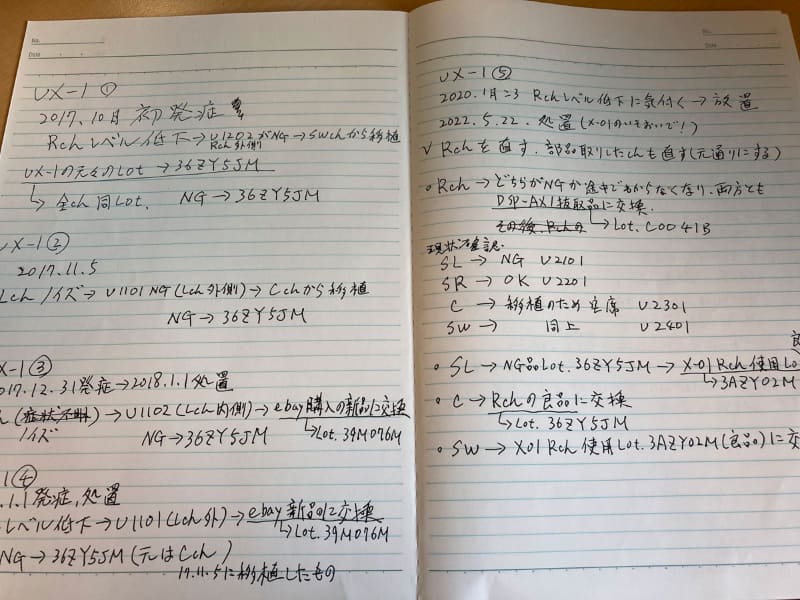 No.
Date
UX-1 ①
2017.10月 初発症
Rchレベル低下→U1202がNG→SWchから移植
Rch外側
UX-1の元々のLot→36ZY5JM
→全ch同Lot. NG→36ZY5JM
UX-1②
2017.11.5
Lchノイズ→U1101 NG(Lch外側)→Cchから移植
NG→36ZY5JM
X-1③
2017.12.31発症→2018.1.1処置
(症状不明)→U1102(Lch内側)→ebay購入の新品に交換
ノイズ NG→36ZY5JM →Lot.39M076M
1④
.1.1発症、処置
レベル低下→U1101(Lch外)→ebay新品に交換
→Lot.39M076M
NG→36ZY5JM(元はCch)
17.11.5に移植したもの
No.
Date
UX-1⑤
2020.1月ころ Rchレベル低下に気付く→放置
2022.5.22. 処置(X-01のいきおいで!)
✓Rchを直す.部品取りしたchも直す(元通りにする)
○Rch→どちらがNGか途中でわからなくなり、両方とも
DSP-AX1抜取品に交換.
その後、Rchの →Lot.C0041B
現状確認
SL→NG U2101
SR→OK U2201
C→移植のため空席 U2301
SW→ 同上 U2401
○SL→NG品Lot.36ZY5JM→X-01 Rch使用Lo
→3AZY02M
○C→Rchの良品に交換
→Lot.36ZY5JM
○SW→X01 Rch使用Lot.3AZY02M(良品)に交